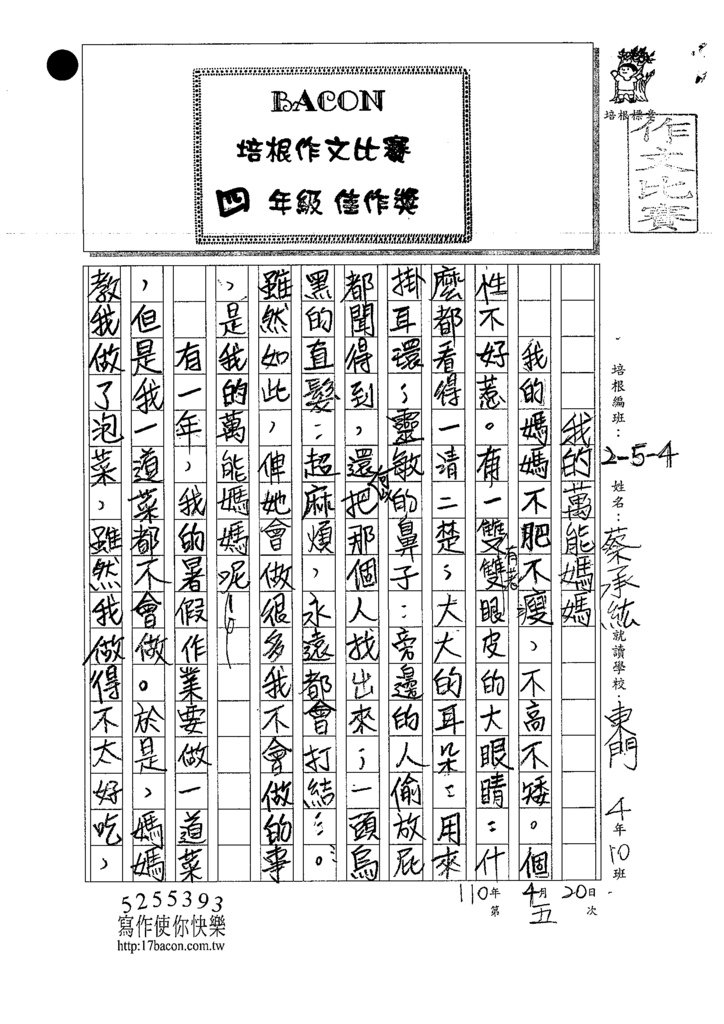 BACON
培根作文比賽
四 年級 佳作獎
培根標章
作文比賽
培根編班：2-5-4 姓名：蔡承紘 就讀學校：東門 4年10班
110年4月20日
第五次
我的萬能媽媽
我的媽媽不肥不瘦、不高不矮。個
性不好惹。有一雙有著雙眼皮的大眼睛：什
麼都看得一清二楚、大大的耳朵：用來
掛耳環；靈敏的鼻子：旁邊的人偷放屁
都聞得到，還可以把那個人找出來；一頭烏
黑的直髮：超麻煩，永遠都會打結……。
雖然如此，但她會做很多我不會做的事
，是我的萬能媽媽呢！
有一年，我的暑假作業要做一道菜
，但是我一道菜都不會做。於是，媽媽
教我做了泡菜，雖然我做得不太好吃，
5255393
寫作使你快樂
http:17bacon.com.tw